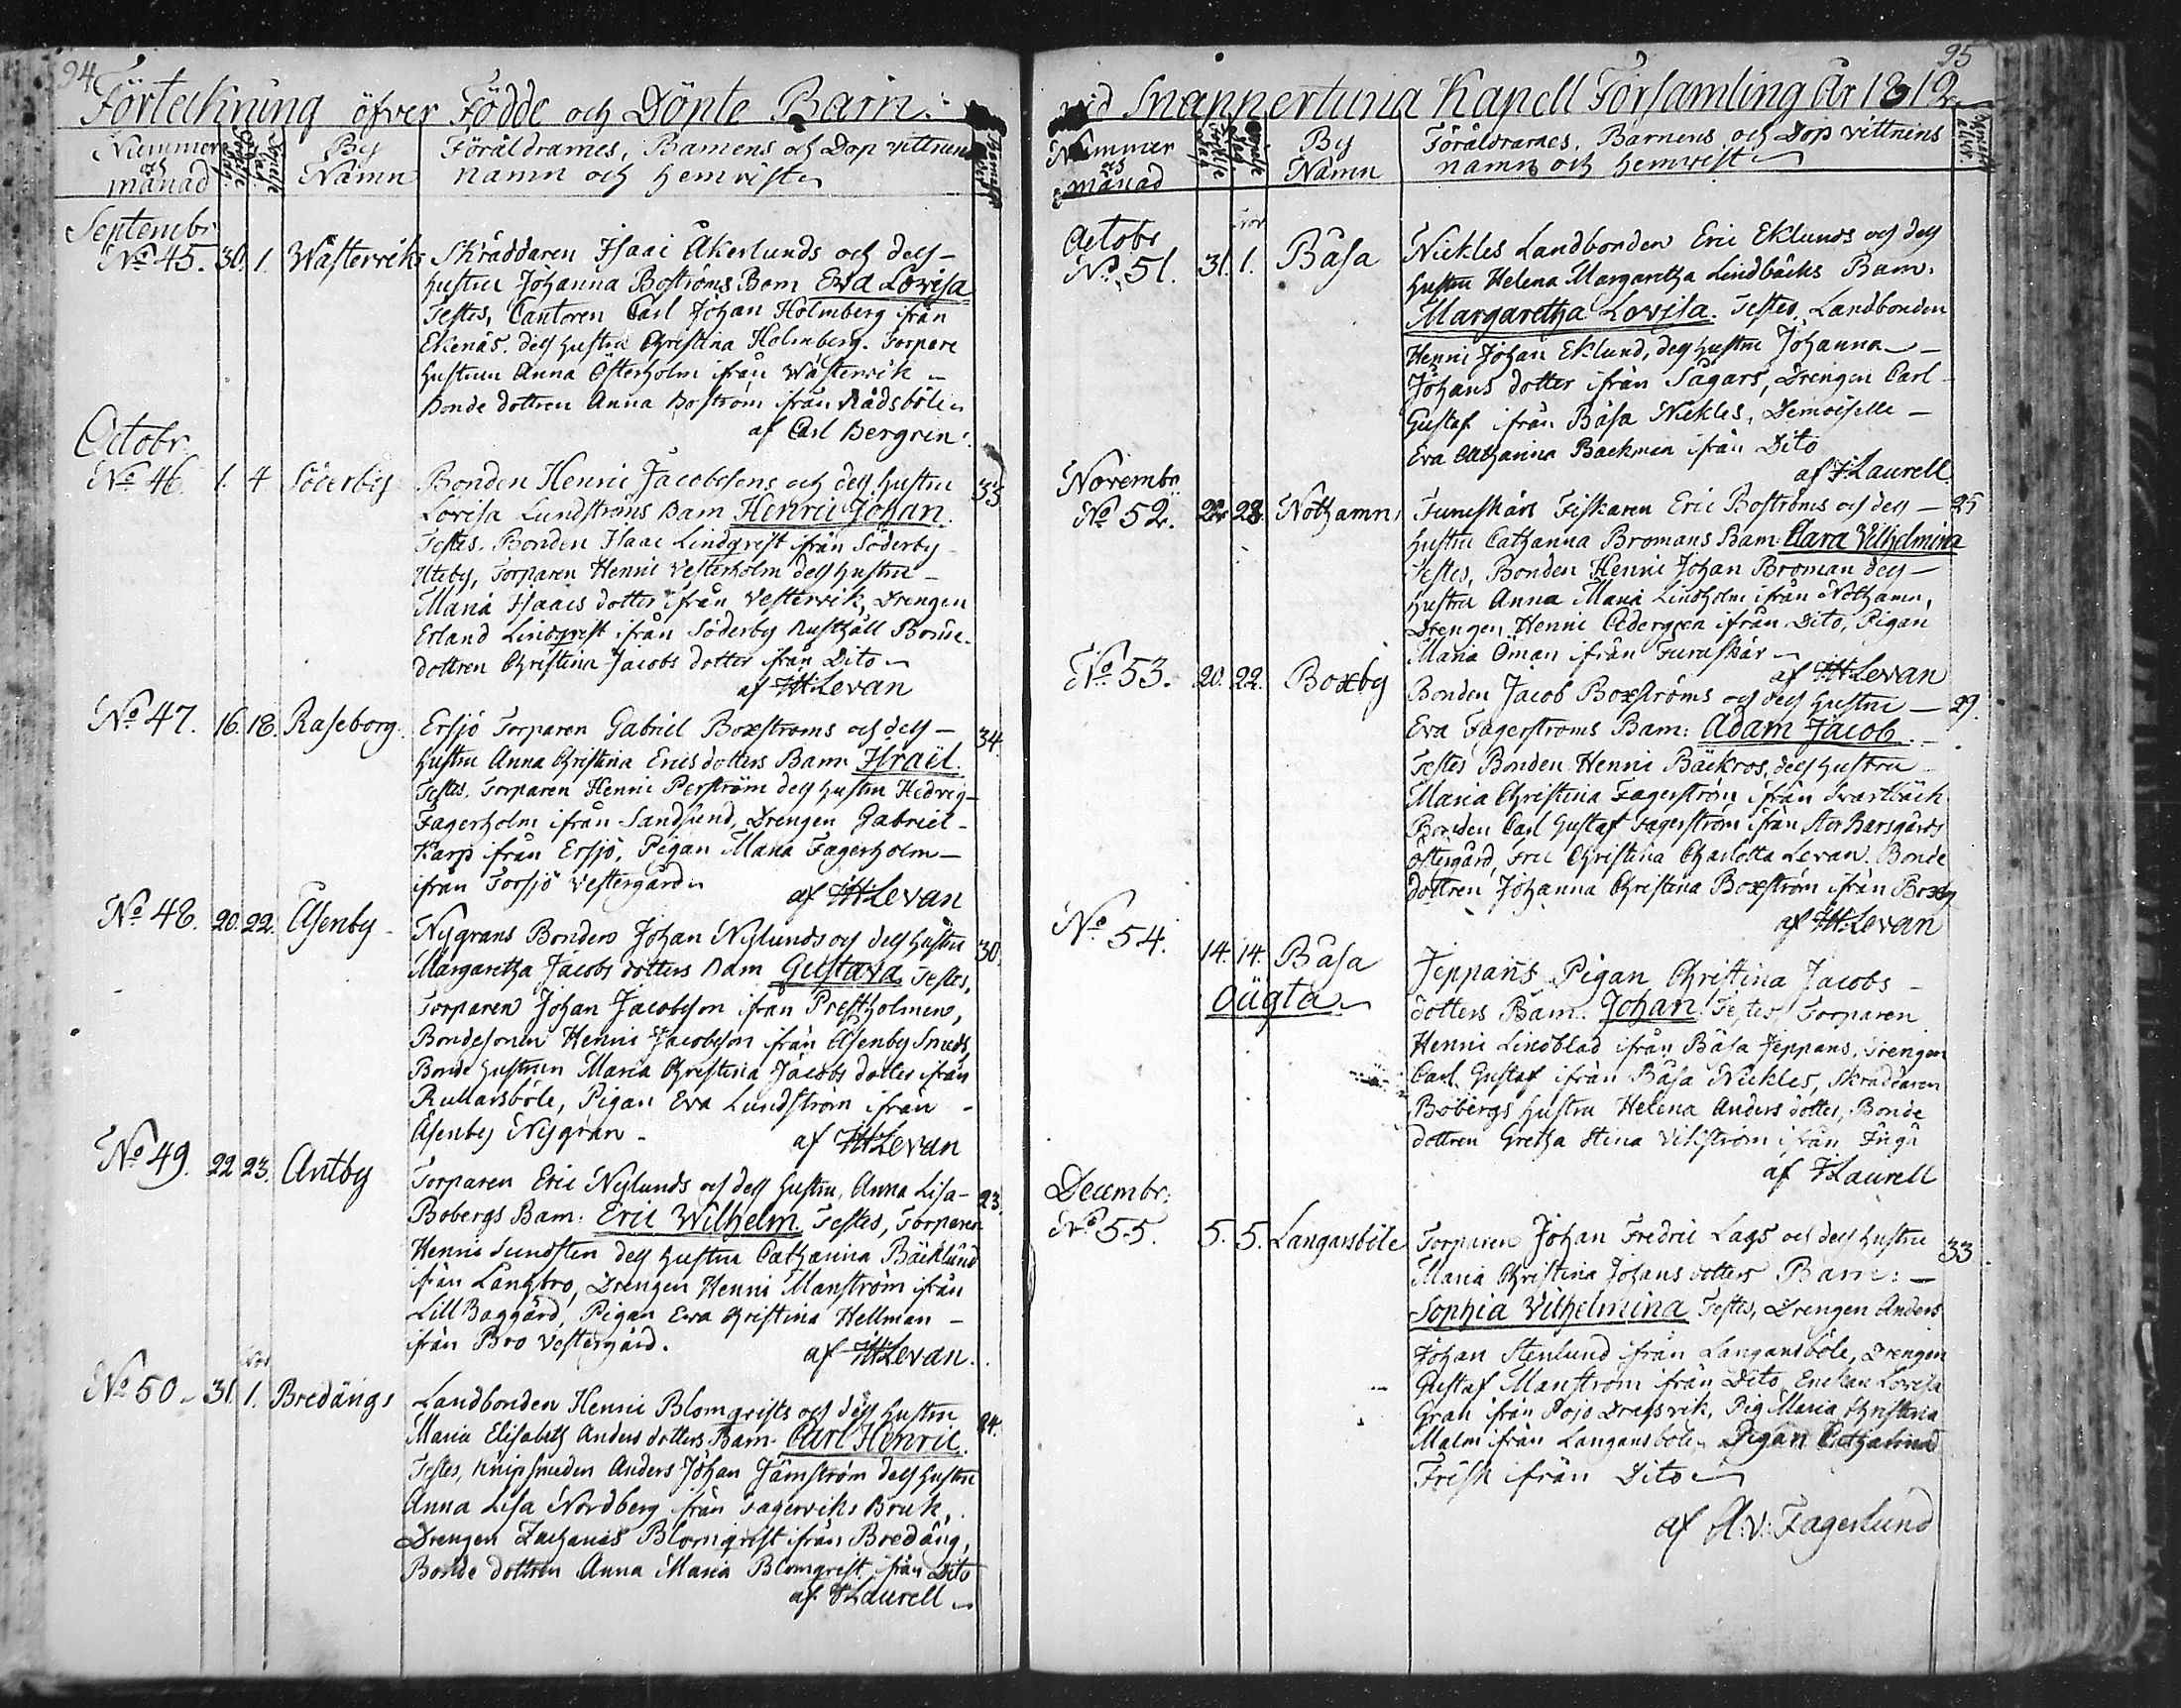 94
Förteckning öfver Födde och Döpte Barn.
Nummer och månad
Födelse dag
Döpelse dag
By Namn
Föräldrarnes, Barnens och Dop vittnens
namn och hemvist
Septembr
No 45. 30. 1. Wästerviks
Skräddaren Isaac Åkerlunds och dess
hustru Johanna Boströms Barn Eva Lovisa
Testes, Cantoren Carl Johan Holmberg ifrån
Ekenäs. dess hustru Christina Holmberg. Torpare
hustrun Anna Österholm ifrån Wästervik
Bonde dottren Anna Boström ifrån Rådsböle
af Carl Bergren
Octobr.
No 46. 1. 4 Söderby
Bonden Henric Jacobssons och dess hustru 33
Lovisa Lundströms Barn Henric Johan.
Testes. Bonden Isaac Lindqvist ifrån Söderby
Uteby, Torparen Henric Vesterholm dess hustru
Maria Isaacs dotter ifrån Vestervik, Drengen
Erland Lindqvist ifrån Söderby Rusthåll Bonde
dottren Christina Jacobs dotter ifrån Dito
af J H: Levan
No 47. 16. 18. Raseborg.
Ersjö Torparen Gabriel Boxstroms och dess 34.
hustru Anna Christina Erics dotters Barn Israël.
Testes. Torparen Henric Perström dess hustru Hedvig
Fagerholm ifrån Sandsund, Drengen Gabriel
Karp ifrån Ersjö, Pigan Maria Fagerholm
ifrån Torsjö Vestergård
af J H: Levan
No 48. 20. 22. Åsenby
Nygrans Bonden Johan Nylunds och dess hustru 30.
Margaretha Jacobs dotters Barn Gustava Testes,
Torparen Johan Jacobsson ifrån Prestholmen,
Bondesonen Henric Jacobsson ifrån Åsenby Smeds,
Bonde hustrun Maria Christina Jacobs dotter ifrån
Rullarsböle, Pigan Eva Lundström ifrån
Åsenby Nygran
af J H: Levan
No 49. 22 23. Antby
Torparen Eric Nylunds och dess hustru, Anna Lisa 23.
Bobergs Barn: Eric Wilhelm. Testes, Torparen
Henric Sundsten dess hustru Catharina Bäcklund
ifrån Långbro, Drengen Henric Manström ifrån
Lill Baggård, Pigan Eva Christina Hellman
ifrån Bro Vestergård.
af J H: Levan.
No 50. 31. 1. Bredängs
Landbonden Henric Blomqvists och dess hustru 24.
Maria Elisabeth Anders dotters Barn. Carl Henric.
Testes, Knipsmeden Anders Johan Jernström dess hustru
Anna Lisa Nordberg ifrån Fagerviks Bruk,
Drengen Zacharias Blomqvist ifrån Bredäng,
Bonde dottren Anna Maria Blomqvist ifrån Dito
af J: Laurell
95
vid Snappertuna Kapell Församling År 1812
Nummer och månad
By Namn
Föräldrarnes, Barnens och Dop vittnens
namn och hemvist
Octobr
No 51. 31. 1. Båsa
Nickles Landbonden Eric Eklunds och dess
hustru Helena Margaretha Lindbäcks Barn.
Margaretha Lovisa. Testes, Landbonden
Henric Johan Eklund, dess hustru Johanna
Johans dotter ifrån Sågars, Drengen Carl
Gustaf ifrån Båsa Nickles, Demoiselle
Eva Catharina Backman ifrån Dito
af J: Laurell
Novembr
No 52. 22 23. Nothamn
Furuskärs Fiskaren Eric Boströms och dess 25
hustru Catharina Bromans Barn Clara Vilhelmina
Testes, Bonden Henric Johan Broman dess
hustru Anna Maria Lindholm ifrån Nothamn,
Drengen Henric Cedergren ifrån Dito, Pigan
Maria Öman ifrån Furuskär
af J H: Levan
No 53. 20. 22. Boxby
Bonden Jacob Boxströms och dess hustru 29.
Eva Fagerstroms Barn: Adam Jacob.
Testes Bonden Henric Bäckros, dess hustru
Maria Christina Fagerström ifrån Svartbäck
Bonden Carl Gustaf Fagerström ifrån Stor Barsgårds
Östergård, Fru Christina Charlotta Levan. Bonde
dottren Johanna Christina Boxström ifrån Boxby
af J H: Levan
No 54. 14. 14. Båsa
Oägta
Jeppans Pigan Christina Jacobs
dotters Barn. Johan. Testes Torparen
Henric Lindblad ifrån Båsa Jeppans, Drengen
Carl Gustaf ifrån Båsa Nickles, Skräddaren
Bobergs hustru Helena Anders dotter, Bonde
dottren Gretha Stina Vikström ifrån
af J: Laurell
Decembr:
No 55. 5. 5. Langansböle
Torparen Johan Fredric Lags och dess hustru 33
Maria Christina Johans dotters Barn:
Sophia Vilhelmina Testes, Drengen Anders
Johan Stenlund ifrån Langansböle, Drengen
Gustaf Manström ifrån Dito, Enckan Lovisa
Gran ifrån Pojo Dragsvik, Pig Maria Christina
Malm ifrån Langansböle, Pigan Catharina
Frisk ifrån Dito
af A: V: Fagerlund